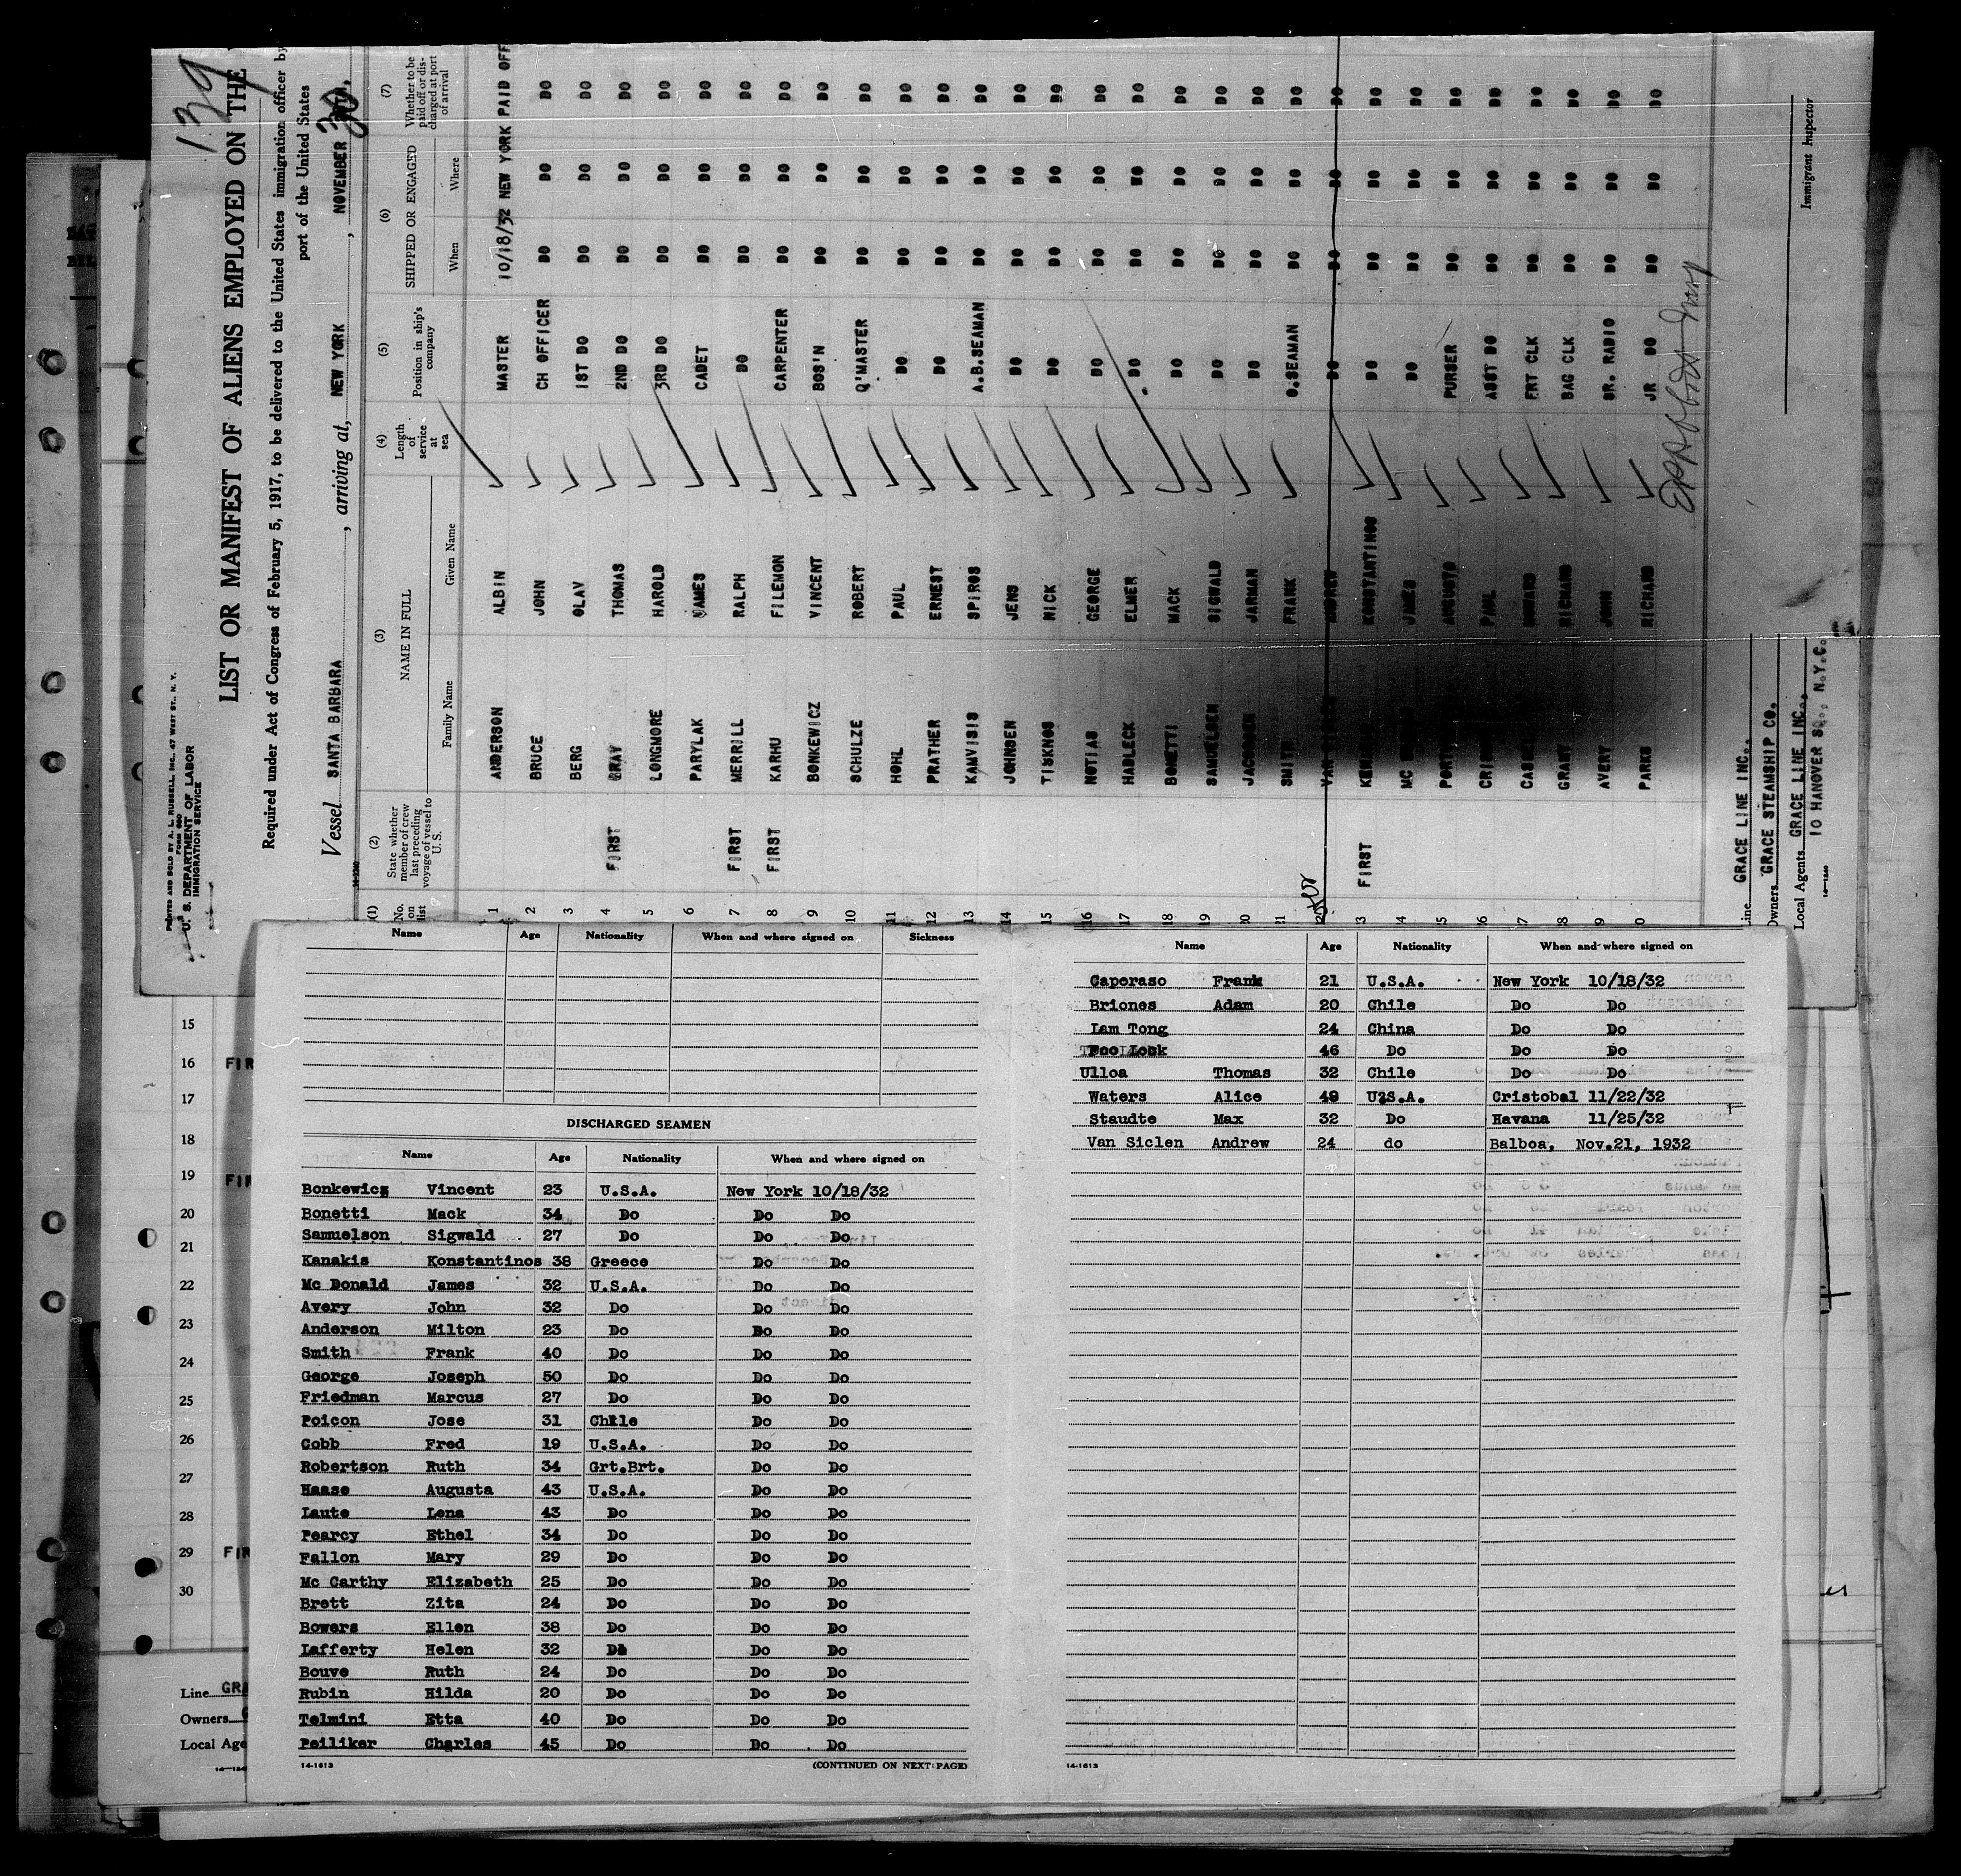 139
PRINTED AND SOLD BY A. L. RUSSELL, INC., 47 WEST ST., N. Y.
FORM 680
U. S. DEPARTMENT OF LABOR
IMMIGRATION SERVICE
LIST OR MANIFEST OF ALIENS EMPLOYED ON THE
Required under Act of Congress of February 5, 1917, to be delivered to the United States immigration officer by
port of the United States
Vessel SANTA BARBARA, arriving at, NEW YORK, NOVEMBER 30
(1) (2) (3) (4) (5) (6) (7)
No. on list State whether member of crew last preceding voyage of vessel to U.S. NAME IN FULL Length of service at sea Position in ship's company SHIPPED OR ENGAGED Whether to be paid off or discharged at port of arrival
Family Name Given Name When Where
1 ANDERSON ALBIN MASTER 10/18/32 NEW YORK PAID OFF
2 BRUCE JOHN CH OFFICER DO DO DO
3 BERG OLAV 1ST DO DO DO DO
4 FIRST GRAY THOMAS 2ND DO DO DO DO
5 LONGMORE HAROLD 3RD DO DO DO DO
6 PARYLAK JAMES CADET DO DO DO
7 FIRST MERRILL RALPH DO DO DO DO
8 FIRST KARHU FILEMON CARPENTER DO DO DO
9 BONKEWICZ VINCENT BOS'N DO DO DO
10 SCHULZE ROBERT Q'MASTER DO DO DO
11 HOHL PAUL DO DO DO DO
12 PRATHER ERNEST DO DO DO DO
13 KAMVISIS SPIROS A.B.SEAMAN DO DO DO
14 JOHNSEN JENS DO DO DO DO
15 TISKNOS NICK DO DO DO DO
16 NOTIAS GEORGE DO DO DO DO
17 HADLECK ELMER DO DO DO DO
18 BONETTI MACK DO DO DO DO
19 SAMUELSEN SIGWALD DO DO DO DO
20 JACOBSEN JARMAN DO DO DO DO
21 SMITH FRANK O.SEAMAN DO DO DO
VAN ANDREW DO DO DO DO
3 FIRST KONSTANTINOS DO DO DO DO
4 MC JAMES DO DO DO DO
5 AUGUSTO PURSER DO DO DO
6 PAUL ASST DO DO DO DO
7 HOWARD FRT CLK DO DO DO
8 GRANT RICHARD BAG CLK DO DO DO
9 AVERY JOHN SR. RADIO DO DO DO
0 PARKS RICHARD JR DO DO DO DO
Line GRACE LINE INC.,
Owners GRACE STEAMSHIP CO.
Local Agents GRACE LINE INC.,
10 HANOVER SQ., N.Y.C.
14-1240
Immigrant Inspector
Name Age Nationality When and where signed on Sickness
DISCHARGED SEAMEN
Name Age Nationality When and where signed on
Bonkewicz Vincent 23 U.S.A. New York 10/18/32
Bonetti Mack 34 Do Do Do
Samuelson Sigwald 27 Do Do Do
Kanakis Konstantinos 38 Greece Do Do
Mc Donald James 32 U.S.A. Do Do
Avery John 32 Do Do Do
Anderson Milton 23 Do Do Do
Smith Frank 40 Do Do Do
George Joseph 50 Do Do Do
Friedman Marcus 27 Do Do Do
Poicon Jose 31 Chile Do Do
Cobb Fred 19 U.S.A. Do Do
Robertson Ruth 34 Grt.Brt. Do Do
Haase Augusta 43 U.S.A. Do Do
Laute Lena 43 Do Do Do
Pearcy Ethel 34 Do Do Do
Fallon Mary 29 Do Do Do
Mc Carthy Elizabeth 25 Do Do Do
Brett Zita 24 Do Do Do
Bowers Ellen 38 Do Do Do
Lafferty Helen 32 Do Do Do
Bouve Ruth 24 Do Do Do
Rubin Hilda 20 Do Do Do
Telmini Etta 40 Do Do Do
Peiliker Charles 45 Do Do Do
14-1613 (CONTINUED ON NEXT PAGE)
Name Age Nationality When and where signed on
Caporaso Frank 21 U.S.A. New York 10/18/32
Briones Adam 20 Chile Do Do
Lam Tong 24 China Do Do
Lock 46 Do Do Do
Ulloa Thomas 32 Chile Do Do
Waters Alice 49 U.S.A. Cristobal 11/22/32
Staudte Max 32 Do Havana 11/25/32
Van Siclen Andrew 24 do Balboa, Nov.21, 1932
14-1613
15
16 FIR
17
18
19 FIR
20
21
22
23
24
25
26
27
28
29 FIR
30
Line GRA
Owners
Local Age